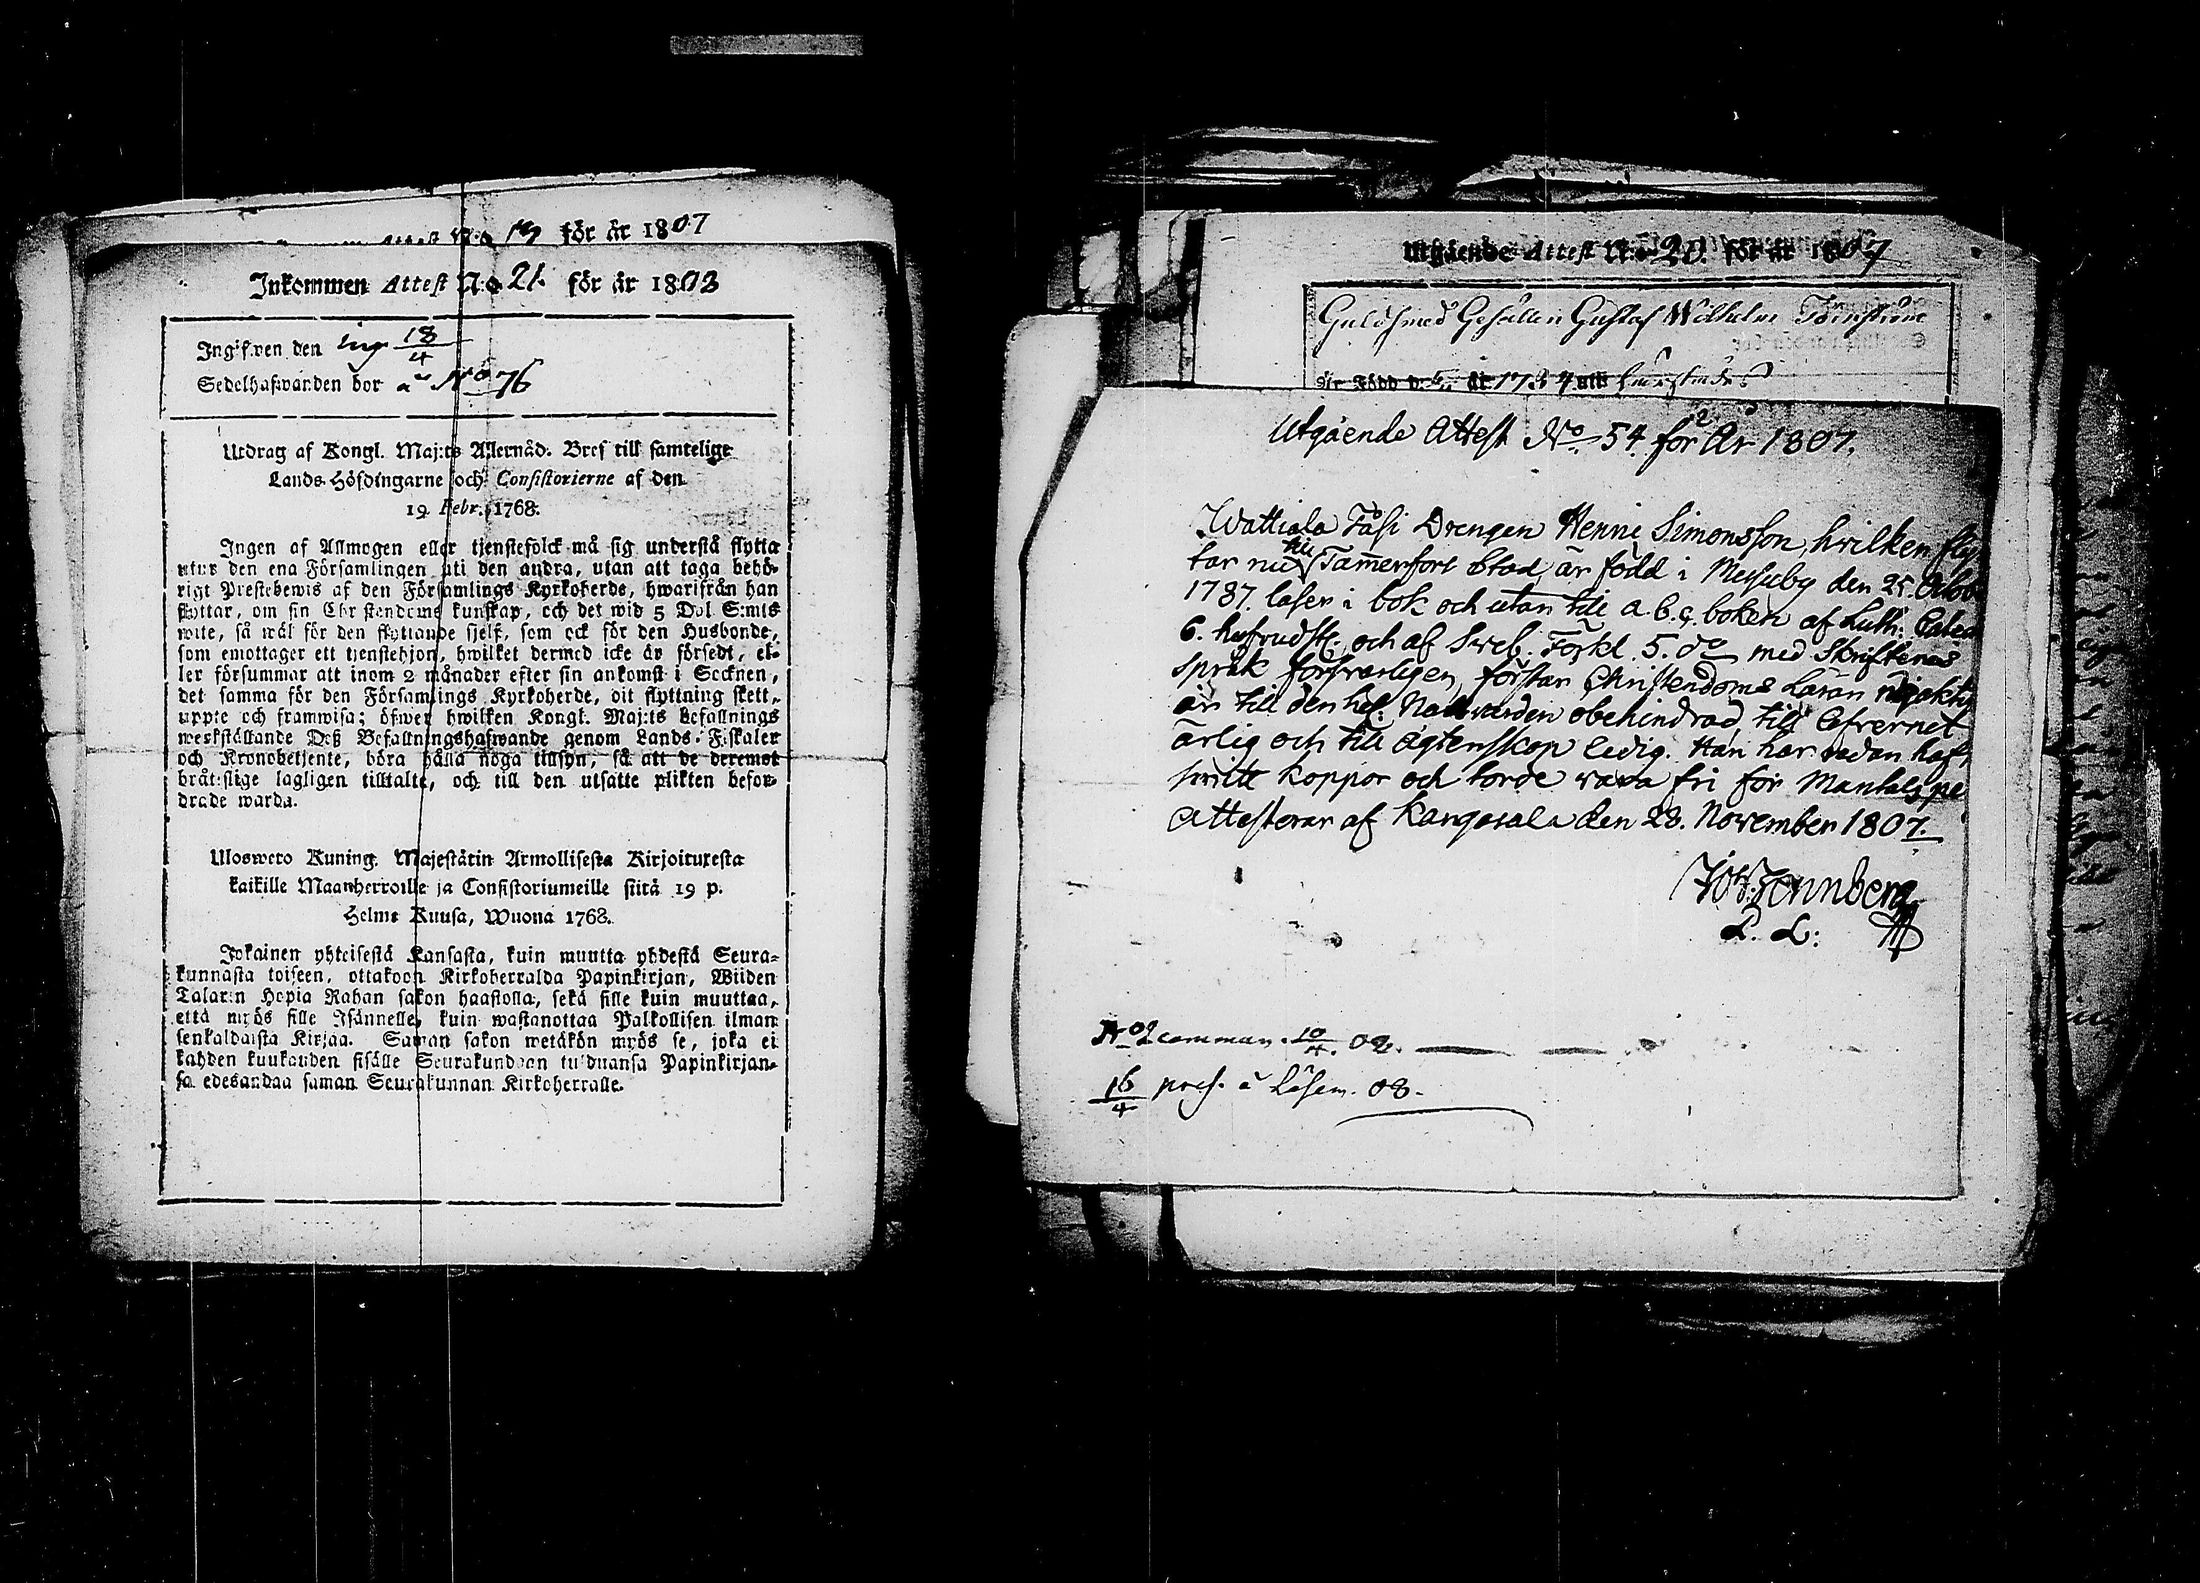 Attest N:o 19 för år 1807
Inkommen Attest N:o 21. för år 1803
Ingifwen den ing 18/4
Sedelhafwanden bor å No 76
Utdrag af Kongl. Maj:ts Allernåd. Bref till samtelige
Lands-Höfdingarne och Consistorierne af den
19 Febr. 1768.
Ingen af Allmogen eller tjenstefolck må sig understå flytta
utur den ena Församlingen uti den andra, utan att taga behö-
rigt Prestebewis af den Församlings Kyrkoherde, hwarifrån han
flyttar, om sin Christendoms kunskap, och det wid 5 Dal. S:mts
wite, så wäl för den flyttande sjelf, som ock för den Husbonde,
som emottager ett tjenstehjon, hwilket dermed icke är försedt, el-
ler försummar att inom 2 månader efter sin ankomst i Socknen,
det samma för den Församlings Kyrkoherde, dit flyttning skett,
uppte och framwisa; öfwer hwilken Kongl. Maj:ts befallnings
werkställande Deß Befallningshafwande genom Lands-Fiskaler
och Kronobetjente, böra hålla noga tillsyn, så att de deremot
bråtslige lagligen tilltalte, och till den utsatte plikten befor-
drade warda.
Uloswero Kuning. Majestätin Armollisesta Kirjoituxesta
kaikille Maanherroille ja Consistoriumeille siitä 19 p.
Helme Kuusa, Wuona 1768.
Jokainen yhteisestä Kansasta, kuin muutta yhdestä Seura-
kunnasta toiseen, ottakoon Kirkoherralda Papinkirjan, Wiiden
Talarin Hopia Rahan sakon haastolla, sekä sille kuin muuttaa,
että myös sille Isännelle, kuin wastanottaa Palkollisen ilman
senkaldaista Kirjaa. Saman sakon wetäkön myös se, joka ei
kahden kuukauden sisälle Seurakundaan tulduansa Papinkirjan-
sa edesandaa saman Seurakunnan Kirkoherralle.
Utgående Attest N:o 20. för år 1807
Guldsmeds Gesällen Gustaf Wilhelm
Är Född d. år 1784 uti
Utgående Attest No. 54. för År 1807.
Wattiala Fåsi Drengen Henric Simonsson, hvilken flyt
tar nu till Tam̄erfors Stad, är född i Messuby den 25. Octob
1787. läser i bok och utan till a.b.c. boken af Luth: Catec
6. hufvudst: och af Sveb. Förkl. 5. do med Skriftenes
språk försvarligen, förstår Christendoms Läran nöjaktig
är till den hel. Nattvarden obehindrad, till lefvernet
ärlig och till ägtensskap ledig. Han har redan haft
koppor och torde vara fri för Mantalspe
Attesterar af Kangasala den 28. November 1807.
Joh. Zennberg
P. L:
No 2 comman. 10/4. 08.
16/4 pres. å Läsem. 08.